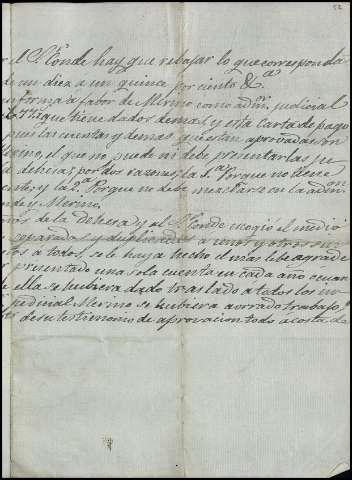 52
r el S.r Conde hay que rebajar lo que corresponda
de un diez a un quince por ciento &.a
informa a fabor de Merino como adm.r judicial
que tiene dados demas, y esta carta de pago
pues las cuentas y demas que estan aprovadas con
Merino, el que no puede ni debe presentarlas ju
dehesas por dos razones la 1.a Porque no tiene
y la 2.a Porque no debe mezclarse en la admon
nde y Merino.
de la dehesa y al S.r Conde escogió el medio
separadas y duplicadas a uno y otro
a todos, se le haya hecho el mas leve agrade
presentado una sola cuenta en cada año cuan
e ella se hubiera dado traslado a todos los in
judicial Merino se hubiera aorrado trabajo y
de su testimonio de aprovacion todo a costa de